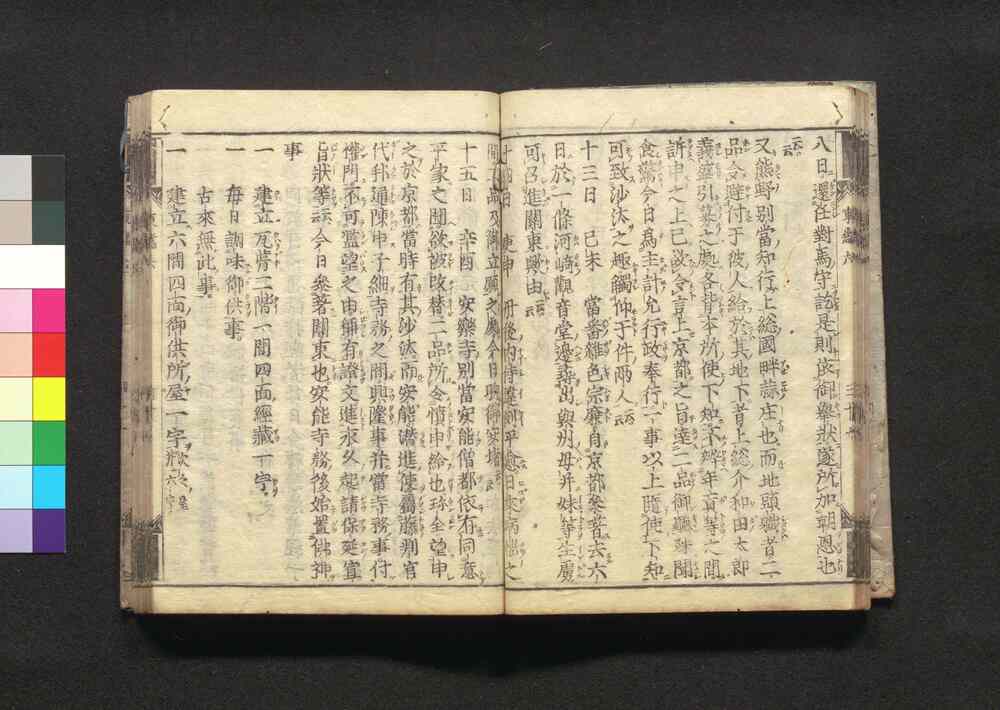 八日還任對馬守訖是則依御擧狀遂所加朝恩也
云云
又熊野別當知行上総國畔蒜庄也而地頭職者二
品令避付于彼人給於其地下者上総介和田太郎
義盛引募之處各背本所使下知不辨年貢等之間
訴申之上已被令言上京都之旨達二品御聽殊聞
食驚今日爲主計允行政奉行一事以上隨使下知
可致沙汰之趣觸仰于件兩人云云
十三日 己未 當番雜色宗廉自京都參著去六
日於一條河崎觀音堂邊尋出與州母并妹等生虜
可召進關東歟由云云
十四日 庚申 丹後內侍
間二品
十五日 辛酉 安樂寺別當安能僧都依有同意
平家之聞欲被改替二品所令憤申給也珎全望申
之於京都當時有其沙汰而安能潛進使屬藤判官
代邦通陳申子細寺務之間興隆事并當寺務事付
僧門不可濫望之由誦有證文進永久起請保延宣
旨狀等云云今日參著關東也安能寺務後始置佛神
事
一 建立瓦葺二階一間四面經藏一宇
一 每日調味御供事
古來無此事
一 建立六間四面御供所屋一宇